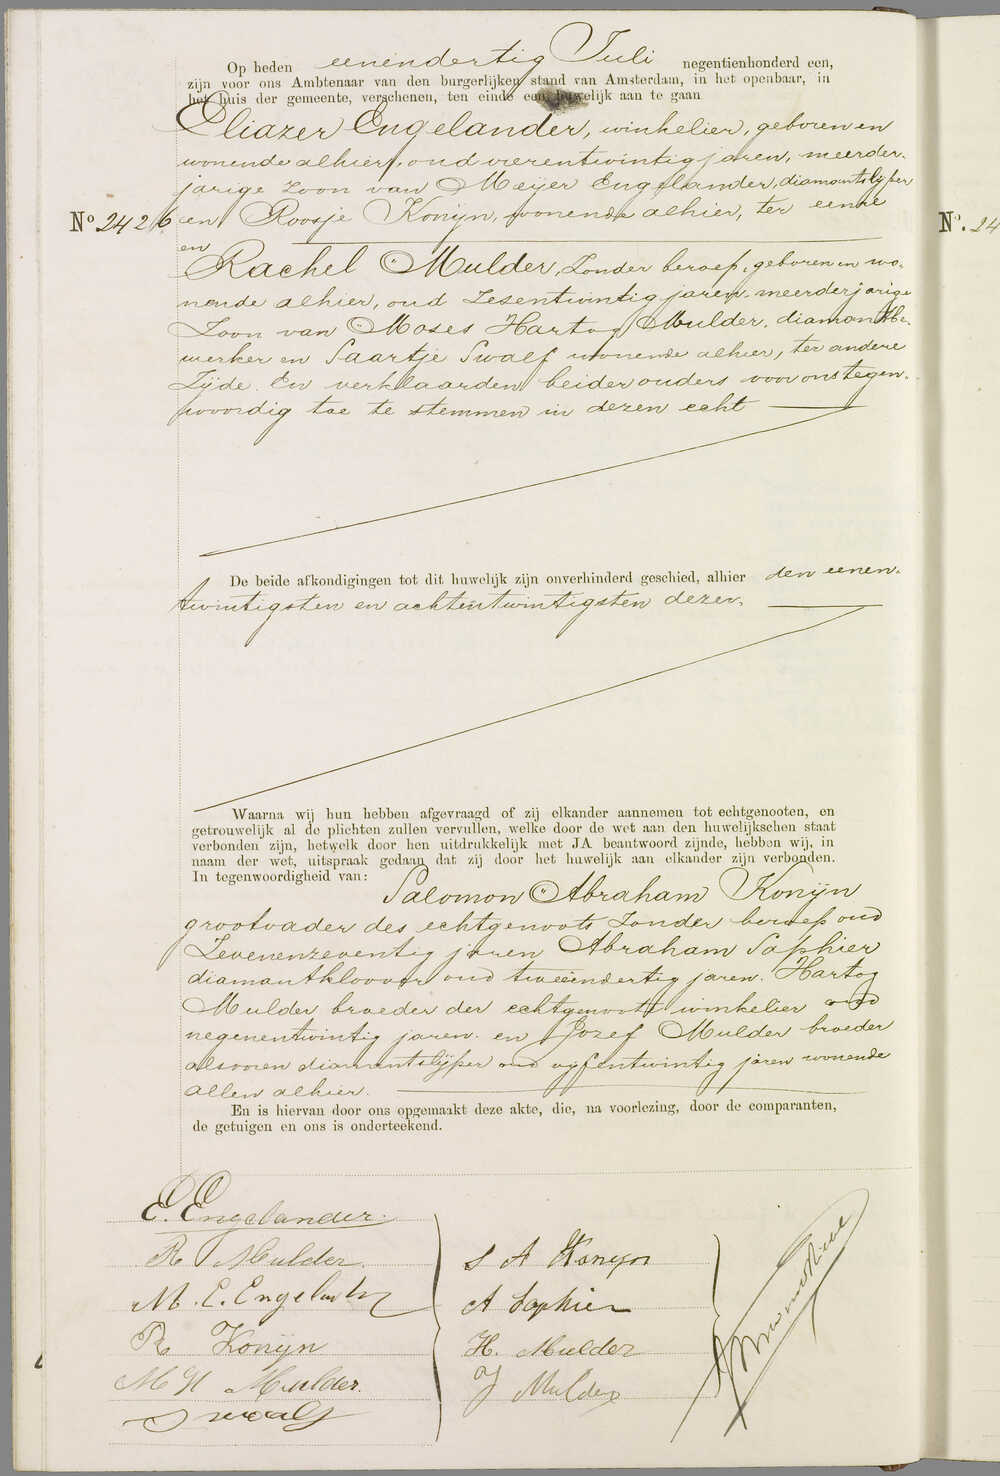 Op heden eenendertig Juli negentienhonderd een,
zijn voor ons Ambtenaar van den burgerlijken stand van Amsterdam, in het openbaar, in
het huis der gemeente, verschenen, ten einde een huwelijk aan te gaan
Eliazer Engelander, winkelier, geboren en
wonende alhier, oud vierentwintig jaren, meerder-
jarige zoon van Meijer Engelander, diamantslijper
No 2426 en Roosje Konijn, wonende alhier, ter eenre
No. 24
en
Rachel Mulder, zonder beroep, geboren en wo-
nende alhier, oud zesentwintig jaren, meerderjarige
Zoon van Moses Hartog Mulder, diamantbe-
werker en Saartje Swalf wonende alhier, ter andere
Zijde. En verklaarden beider ouders voor ons tegen-
woordig toe te stemmen in dezen echt
De beide afkondigingen tot dit huwelijk zijn onverhinderd geschied, alhier den eenen-
twintigsten en achtentwintigsten dezer.
Waarna wij hun hebben afgevraagd of zij elkander aannemen tot echtgenooten, en
getrouwelijk al de plichten zullen vervullen, welke door de wet aan den huwelijkschen staat
verbonden zijn, hetwelk door hen uitdrukkelijk met JA beantwoord zijnde, hebben wij, in
naam der wet, uitspraak gedaan dat zij door het huwelijk aan elkander zijn verbonden.
In tegenwoordigheid van:
Salomon Abraham Konijn
grootvader des echtgenoots zonder beroep oud
Zevenenzeventig jaren Abraham Saphier
diamantkloover oud tweeëndertig jaren. Hartog
Mulder broeder der echtgenoote winkelier oud
negenentwintig jaren. en Jozef Mulder broeder
alsvoren diamantslijper oud vijfentwintig jaren wonende
allen alhier.
En is hiervan door ons opgemaakt deze akte, die, na voorlezing, door de comparanten,
de getuigen en ons is onderteekend.
E. Engelander.
R Mulder.
M. E. Engelander
R Konijn
M H Mulder.
S Swalf
S A Konijn
A Saphier
H. Mulder
J Mulder